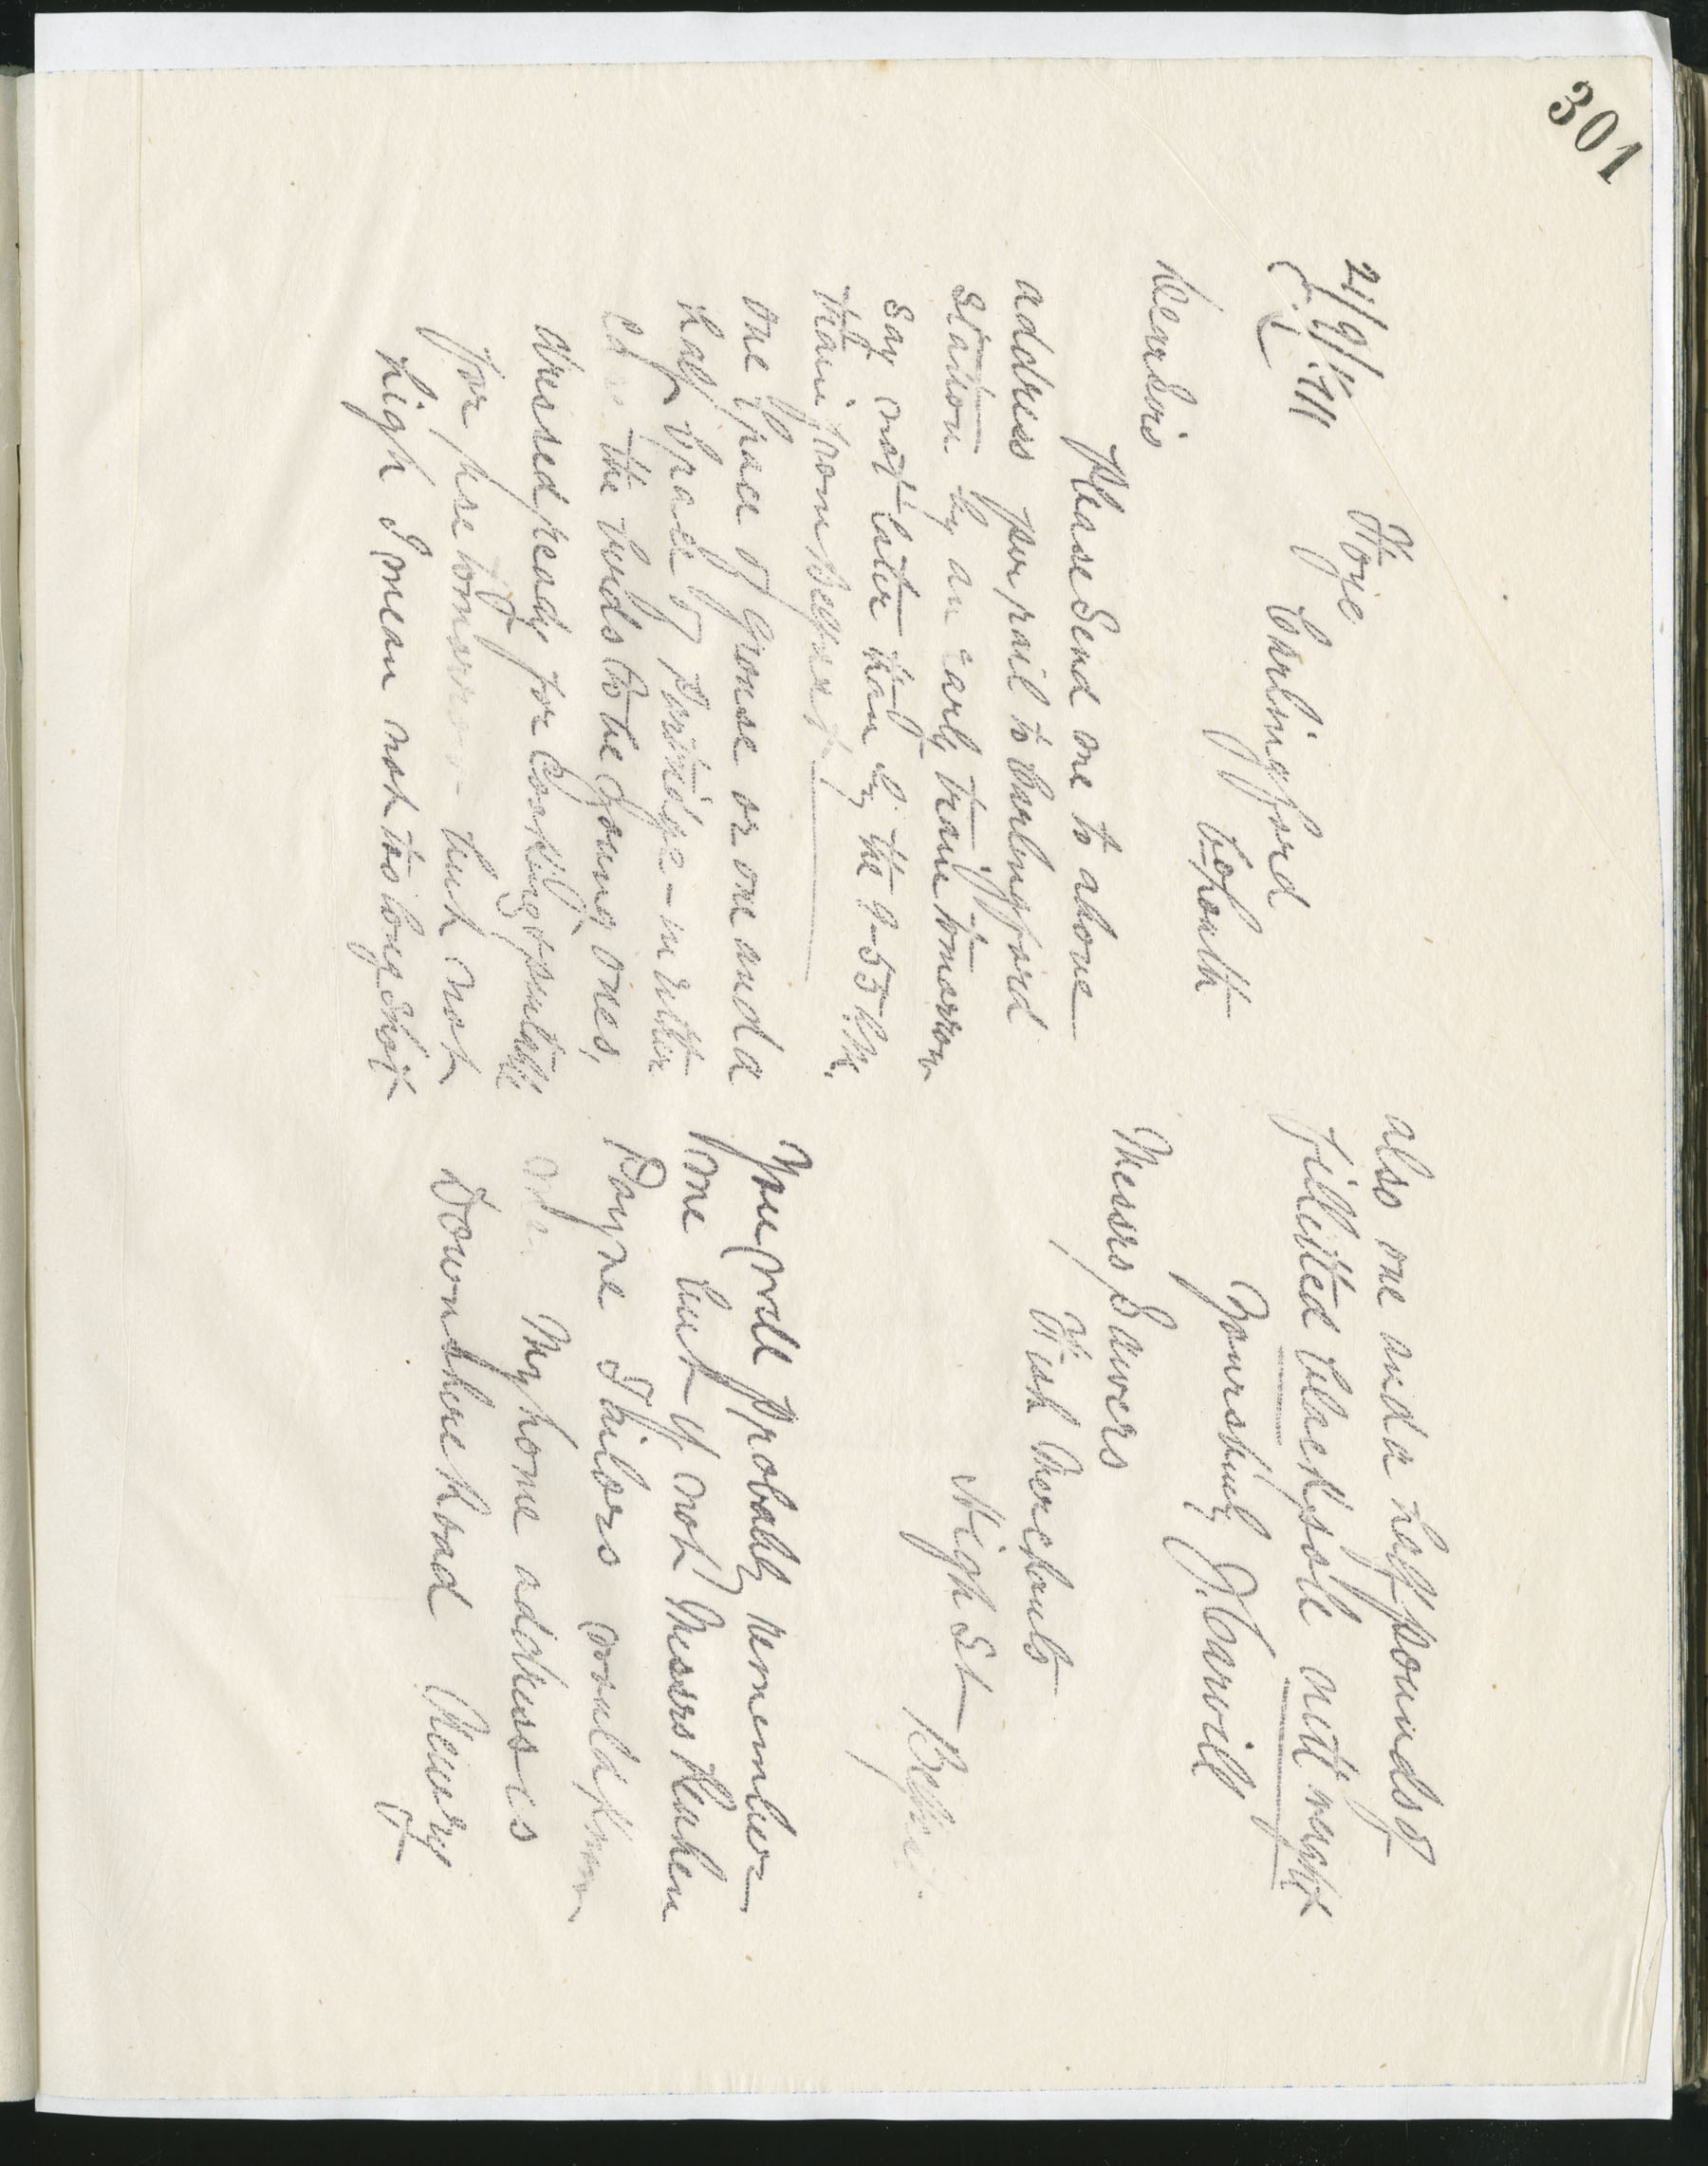 301
21/9/1911
Foye
Carlingford
Co Louth
Dear Sirs
Please send me to above
address per rail to Carlingford
Station by an early train tomorrow
say not later than by the 9-55 A.M.
train from Belfast
one brace of grouse or one and a
half brace of Partridge - in either
the birds to be young ones,
dressed ready for cooking & suitable
for use tomorrow - but not
high I mean not too long shot
also one and a half pounds of
filletted black sole nice & fresh
Yours truly J. Carvill
Messrs Sawers
Fish Merchants
High St Belfast
You will probably remember
me but if not Messrs
Payne Tailors would know
me. My home address is
Downshire Road Newry